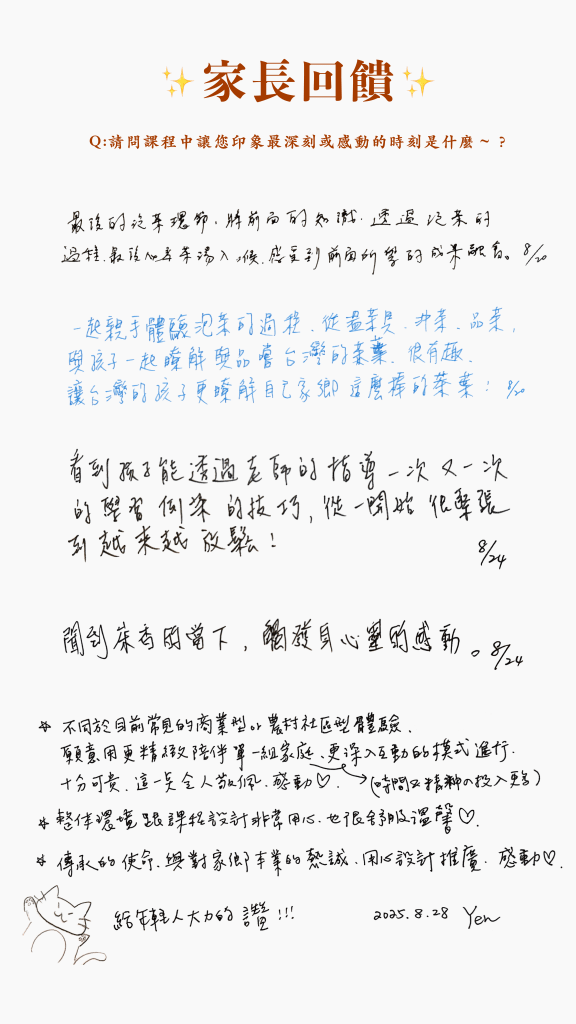 家長回饋
Q:請問課程中讓您印象最深刻或感動的時刻是什麼~?
最後的泡茶環節,將前面的知識,透過泡茶的
過程,最後一杯茶湯入喉,感受到前面所學的成果融合。8/20
一起親手體驗泡茶的過程、從溫茶具、沖茶、品茶,
與孩子一起瞭解與品嚐台灣的茶葉,很有趣、
讓台灣的孩子更瞭解自己家鄉這麼棒的茶葉! 8/20
看到孩子能透過老師的指導一次又一次
的學習倒茶的技巧,從一開始很緊張
到越來越放鬆!
8/24
聞到茶香的當下,觸發身心靈的感動。8/24
☆ 不同於目前常見的商業型or農村社區型體驗,
願意用更精緻陪伴單一組家庭、更深入互動的模式進行.
十分可貴,這一點令人敬佩,感動♡. →(時間及精神の投入更多)
☆ 整体環境跟課程設計非常用心,也很舒服溫馨♡.
☆ 傳承的使命,與對家鄉本業的熱誠,用心設計推廣,感動♡.
給年輕人大力的讚!!!
2025.8.28 Yen